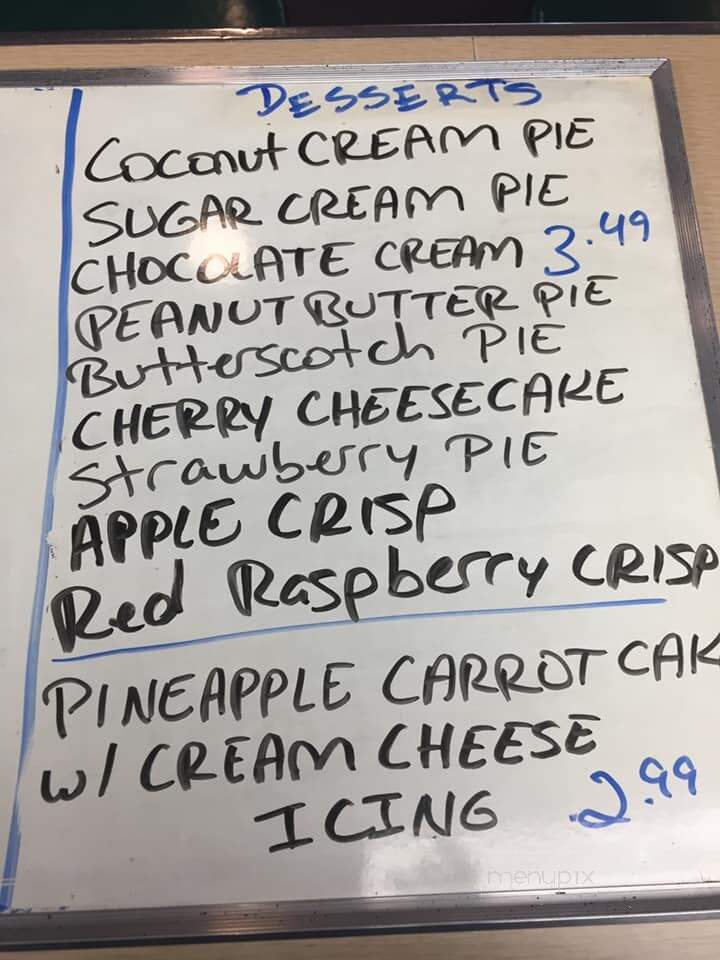 DESSERTS
Coconut CREAM PIE
SUGAR CREAM PIE
CHOCOLATE CREAM 3.49
PEANUT BUTTER PIE
Butterscotch PIE
CHERRY CHEESECAKE
Strawberry PIE
APPLE CRISP
Red Raspberry CRISP
PINEAPPLE CARROT CAK
W/ CREAM CHEESE
ICING 2.99
menupix